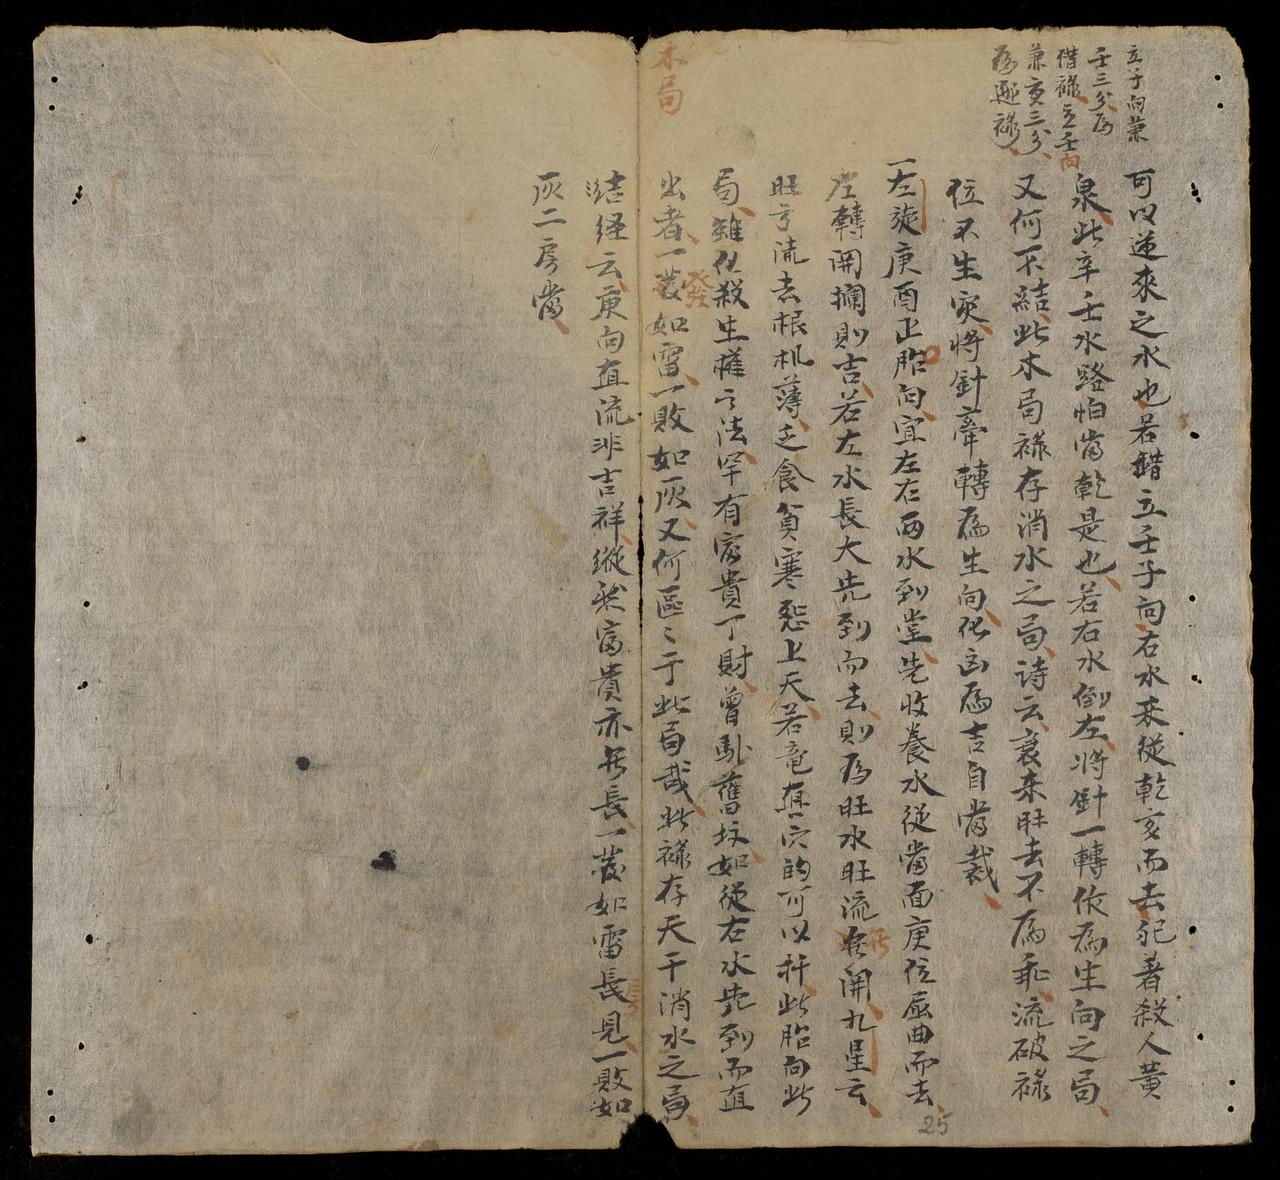 立子向兼
壬三分為
借祿立壬向
兼亥三分
為廵祿
可以逆來之水也若錯立壬子向右水來從乾亥而去犯着殺人黃
泉此辛壬水路怕當乾是也若右水倒左将針一轉作為生向之局
又何不結此木局祿存消水之局诗云衰来旺去不為乖流破祿
位不生灾将針牽轉為生向化凶為吉自當裁
一左旋庚酉正胎向宜左右两水到堂先收養水從當面庚位屈曲而去
左轉開攔則吉若左水長大先到而去則為旺水旺流無開九星云
旺方流去根机薄乏食貧寒怨上天若竜真穴的可以扦此胎向此
局雖化殺生權之法罕有富貴丁財曾馱舊坟如從右水先到而直
發
出者一發如雷一敗如灰又何區〻于此局哉此祿存天干消水之局
木局
結经云庚向直流非吉祥縱然富貴亦無長一發如雷長見一敗如
灰二房當
25